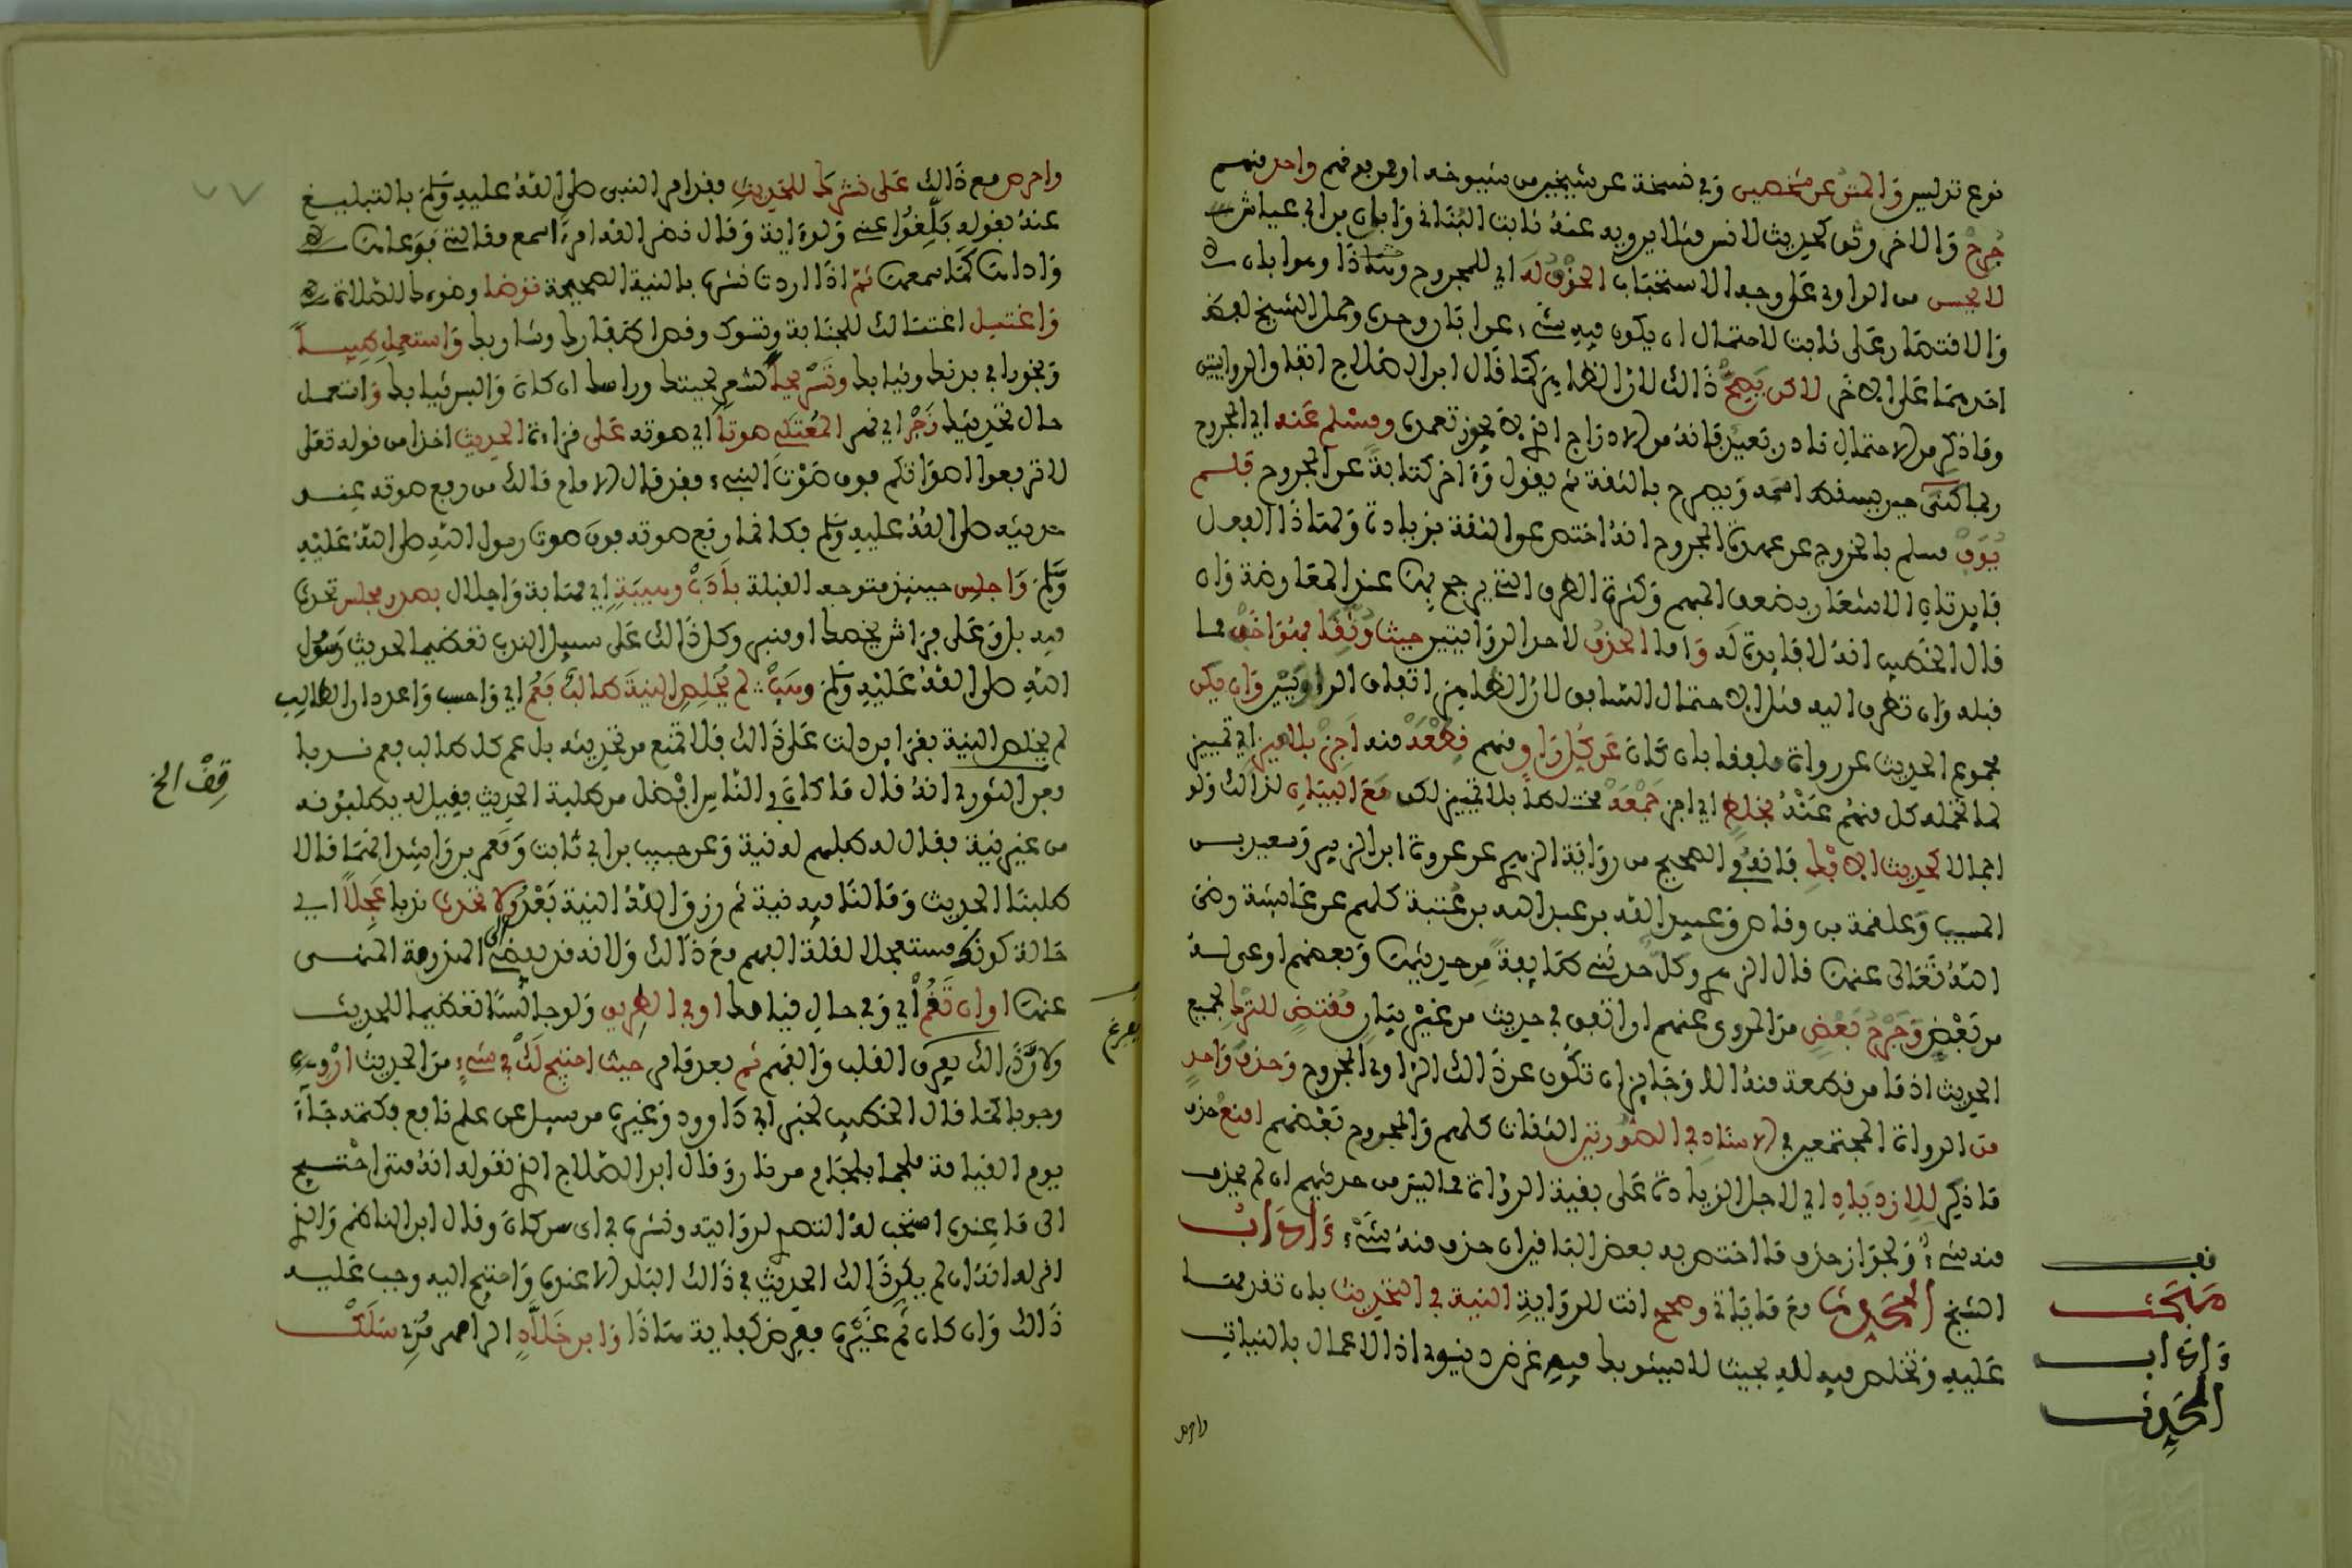 نوع تدليس والمتن عن شخصين وفي نسخة عن شيخين من شيوخه أو ممن فوقهم واحد منهم
جرح والآخر وثق كحديث لأنس مثلا يرويه عنه ثابت البناني وأبان بن أبي عياش
لا يحسن من الراوي على وجه الاستحباب الحذف له أي للمجروح وهو أبان
والاقتصار على ثابت لاحتمال أن يكون فيه شيء عن أبان وحده وحمل الشيخ لفظ
أحدهما على الآخر لكن يصح ذلك لأن الظاهر كما قال ابن الصلاح اتفاق الروايتين
وما ذكر من الاحتمال نادر بعيد فإنه من الإدراج الذي لا يجوز تعمده ومسلم عنه أي المجروح
ربما كنى حيث يسقط اسمه ويصرح بالثقة ثم يقول وآخر كتابة عن المجروح فلم
يوف مسلم بالخروج عن عهدة المجروح إن اختص عن الثقة بزيادة ولهذا الفعل
فائدتان الإشعار بضعف المبهم وكثرة الطرق التي يرجح بها عند المعارضة وإن
قال الخطيب إنه لا فائدة له وأما الحذف لأحد الراويين حيث وثقا فهو أخف مما
قبله وإن تطرق إليه مثل الاحتمال السابق لأن الظاهر اتفاق الراويين وإن يكن
مجموع الحديث عن رواة ملفقا بأن كان عن كل راو منهم قطعة منه أجز بلا ميز أي تمييز
لما تحمله كل منهم عنه بخلط أي أجز جمعه مختلطا بلا تمييز لكن مع البيان لذلك ولو
إجمالا كحديث الإفك فإنه في الصحيح من رواية الزهري عن عروة ابن الزبير وسعيد بن
المسيب وعلقمة بن وقاص وعبيد الله بن عبد الله بن عتبة كلهم عن عائشة رضي
الله تعالى عنها قال الزهري وكل حدثني طائفة من حديثها وبعضهم أوعى له
من بعض وجرح بعض من المروي عنهم إن اتفق في حديث من غير بيان مقتض للترك لجميع
الحديث إذ ما من قطعة منه إلا وجائز أن تكون عن ذلك الراوي المجروح وحذف واحد
من الرواة المجتمعين في الإسناد في الصورتين الثقات كلهم والمجروح بعضهم امنع حذف
ما ذكر للازدياد أي لأجل الزيادة على بقية الرواة مما ليس من حديثهم إن لم يحذف
منه شيء ولجواز حذف ما اختص به بعض الباقين إن حذف منه شيء وآداب
الشيخ المحدث مع ما يأتي وصحح أنت للرواية النية في التحديث بأن تقدمها
عليه وتخلص فيه لله بحيث لا يشوبك فيه غرض دنيوي إذ الأعمال بالنيات
واحرص
قف
مبحث
وآداب
المحدث
واحرص مع ذلك على نشرك للحديث فقد أمر النبي صلى الله عليه وسلم بالتبليغ
عنه بقوله بلغوا عني ولو آية وقال نضر الله امرأ سمع مقالتي فوعاها
وأداها كما سمعها ثم إذا أردت نشره بالنية الصحيحة توضأ وضوءك للصلاة
واغتسل اغتسالك للجنابة وتسوك وقص أظفارك وشاربك واستعمل طيبا
وبخورا في بدنك وثيابك وتسريحا لشعر لحيتك وراسك إن كان والبس ثيابك وانتعل
حال تحديثك زجر أي نهر المعتلي صوتا أي صوته على قراءة الحديث أخذا من قوله تعلى
لا ترفعوا أصواتكم فوق صوت النبيء فقد قال الإمام مالك من رفع صوته عند
حديثه صلى الله عليه وسلم فكأنما رفع صوته فوق صوت رسول الله صلى الله عليه
وسلم واجلس حينئذ متوجه القبلة بأدب وهيبة أي مهابة وإجلال بصدر مجلس تحدث
فيه بل وعلى فراش يخصك أو منبر وكل ذلك على سبيل الندب تعظيما لحديث رسول
الله صلى الله عليه وسلم وهب لم يخلص النية طالب فعم أي واحسب واعدد أن الطالب
لم يخلص النية بقرائن دلت على ذلك فلا تمتنع من تحديثه بل عم كل طالب فعم ندبا
وعن الثوري أنه قال ما كان في الناس أفضل من طلبة الحديث فقيل له يطلبونه
من غير نية فقال له طلبهم له نية وعن حبيب بن أبي ثابت ومعمر بن راشد أنهما قالا
طلبنا الحديث وما لنا فيه نية ثم رزق الله النية بعد ولا تحدث ندبا عجلا أي
حالة كونك مستعجلا لقلة الفهم مع ذلك ولأنه قد يفضي إلى الهذرمة المنهى
عنها أو إن تقم أي وفي حال قيامك أو في الطريق ولو جالسا تعظيما للحديث
ولأن ذلك يفرق القلب والفهم ثم بعد قام حيث احتيج لك في شيء من الحديث ارو
وجوبا كما قال الخطيب لخبر أبي داوود وغيره من سئل عن علم نافع فكتمه جاء
يوم القيامة ملجما بلجام من نار وقال ابن الصلاح الذي نقوله أنه متى احتيج
الى ما عنده استحب له التصدي لروايته ونشره في أي سن كان وقال ابن الناظم والذي
أقوله أنه إن لم يكن ذلك الحديث في ذلك البلد إلا عنده واحتيج إليه وجب عليه
ذلك وإن كان ثم غيره ففرض كفاية هذا وابن خلاد الرامهرمزي سلك
قف الخ
يفرغ